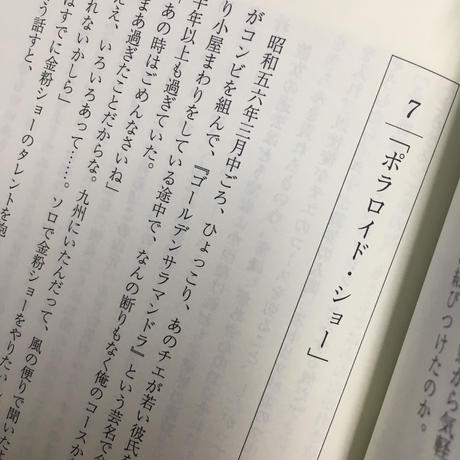 から気軽
結びつけたのか。
7 「ポラロイド・ショー」
昭和五六年三月中ごろ、ひょっこり、あのチエが若い彼氏を
がコンビを組んで、『ゴールデンサラマンドラ』という芸名で
り小屋まわりをしている途中で、なんの断りもなく俺のコースか
年以上も過ぎていた。
あの時はごめんなさいね」
まあ過ぎたことだからな。九州にいたんだって、風の便りで聞いた
ええ、いろいろあって……。ソロで金粉ショーをやりたい
れないかしら」
はすでに金粉ショーのタレントを
う話すと、